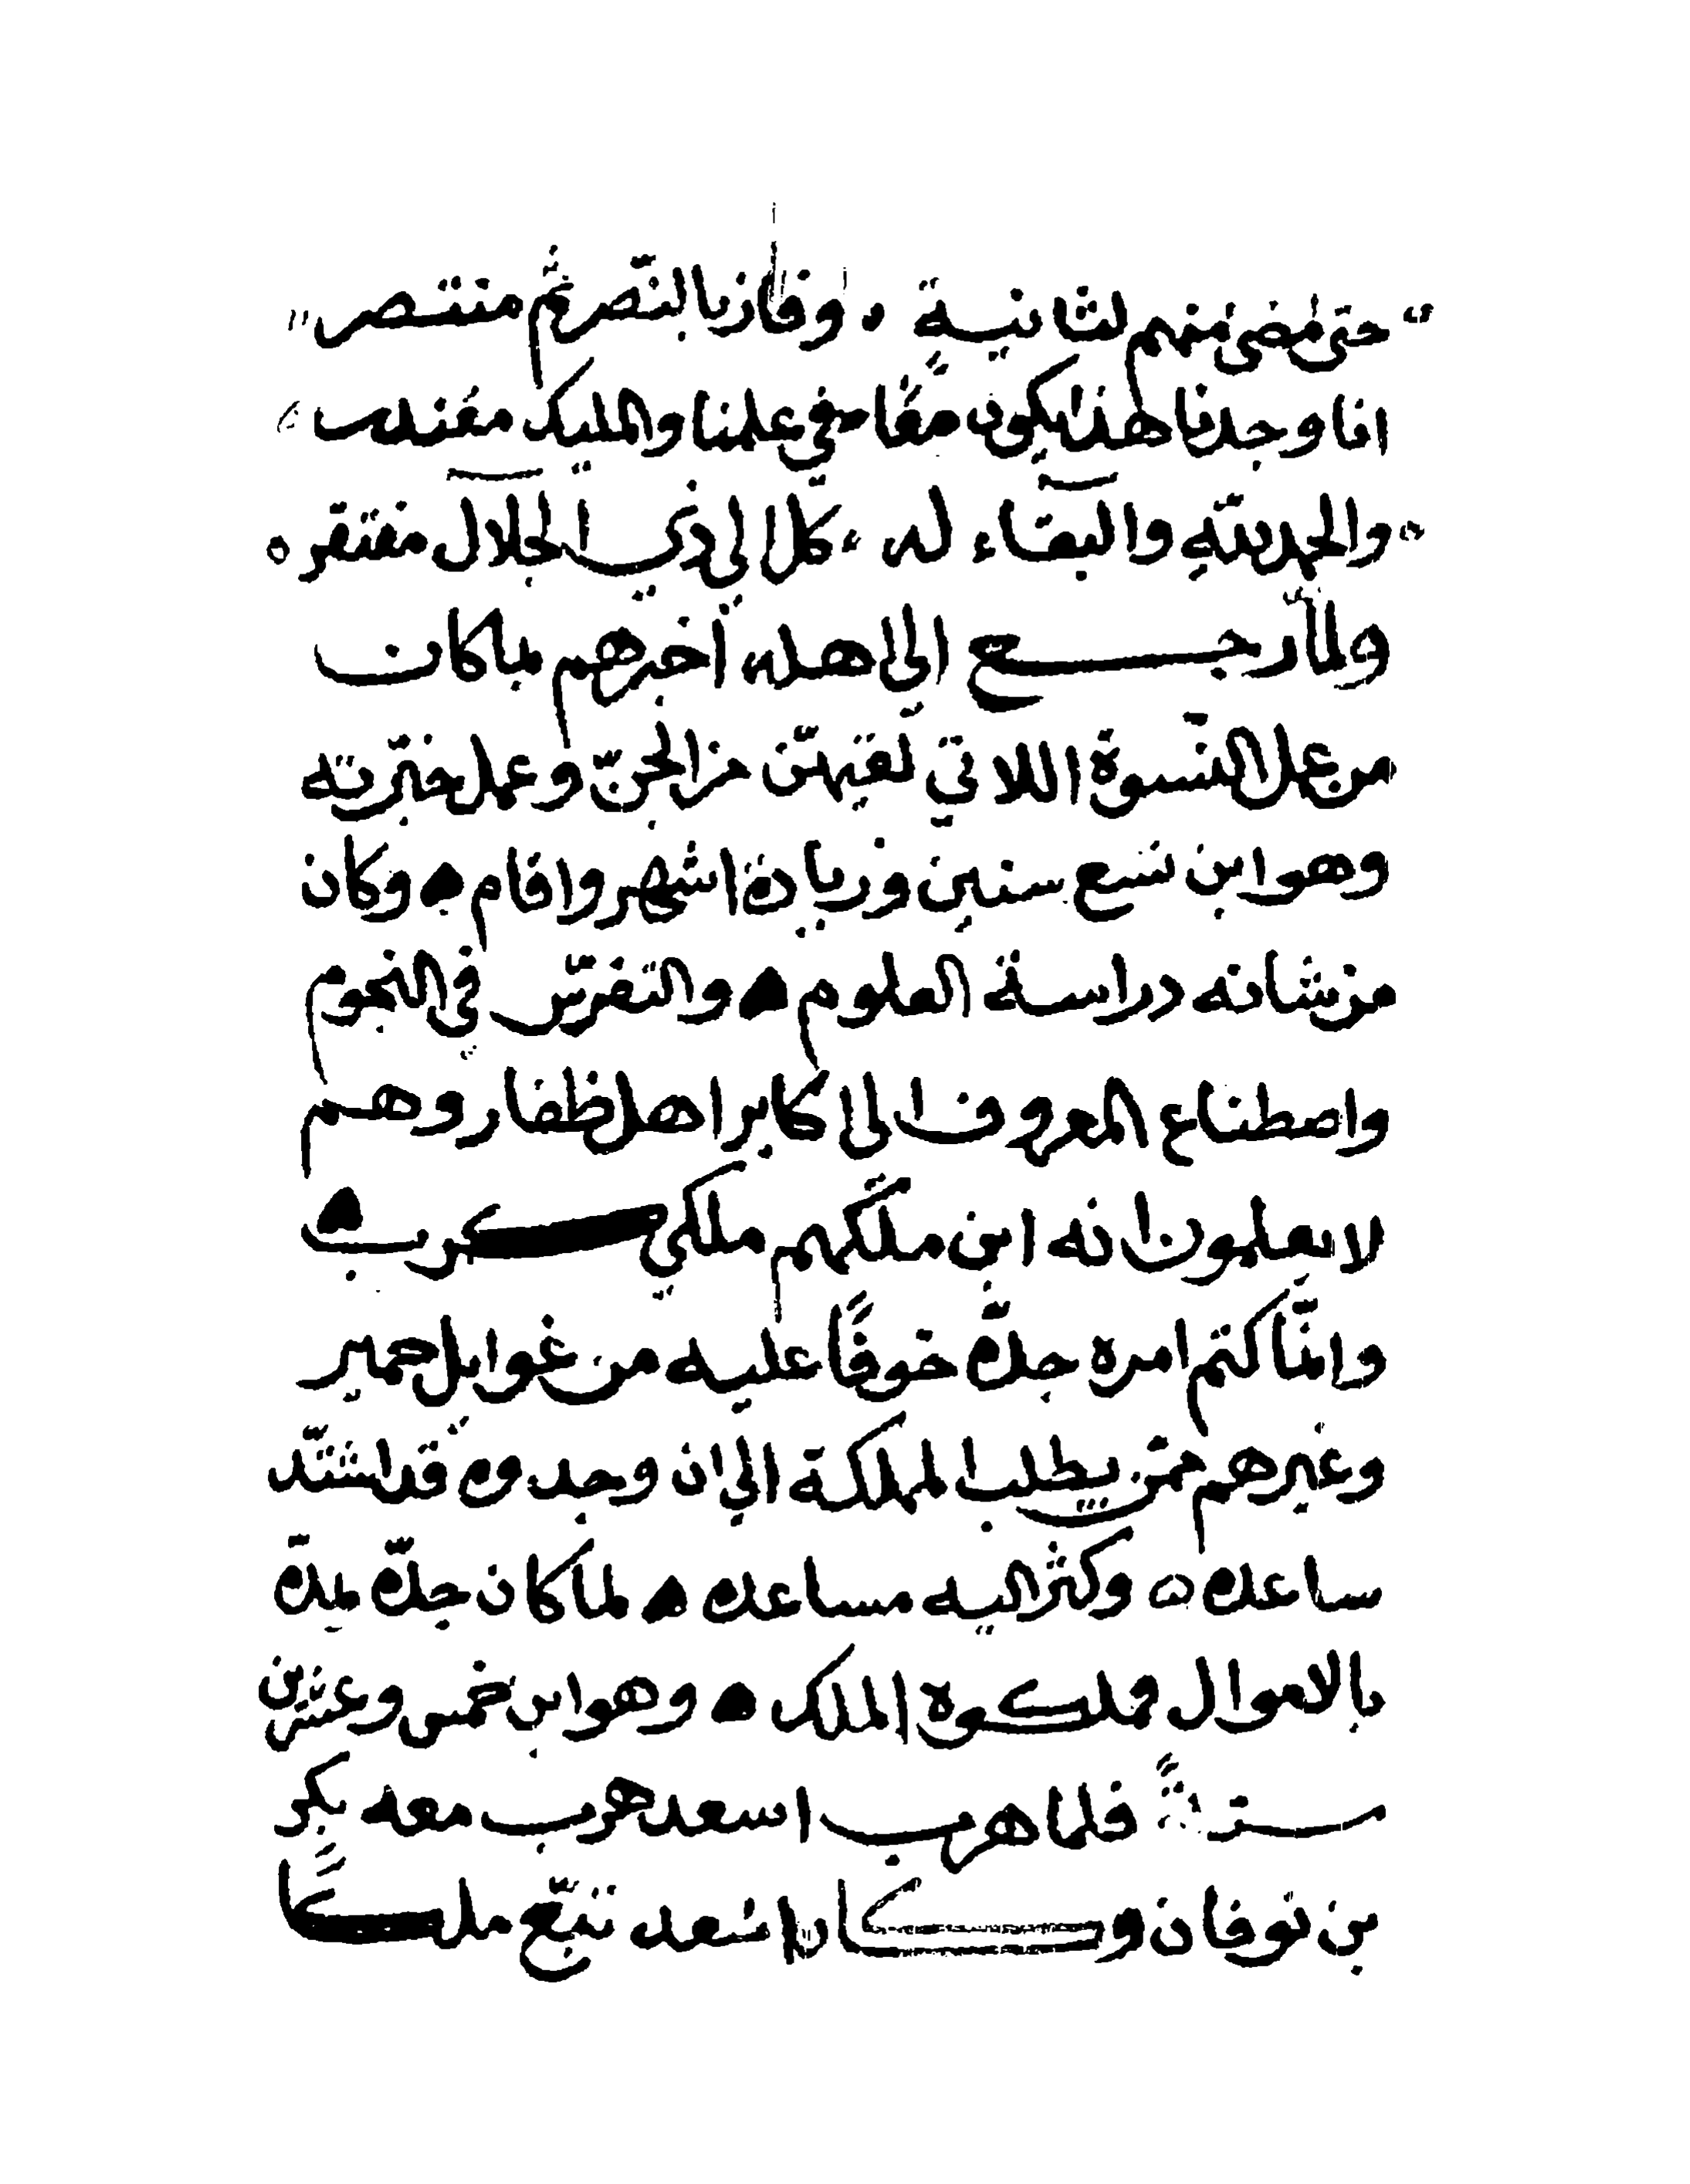 حتى مضى منهم لثانية وفاز بالنصر ثم منتصر
انا وجدنا هذا يكون معًا في علمنا والمليك مقتدر
والحمد لله والبقاء له كل الى ذي الجلال مفتقر
ولما رجع الى اهله اخبرهم بما كان
من عمل النسوة اللاتي لقيهن من الجن وعمل خبرته
وهو ابن تسع سنين وزيادة اشهر واقام وكان
من شانه دراسة العلوم والتفرس في النجوم
واصطناع المعروف الى اكابر اهل ظفار وهم
لا يعلمون انه ابن ملكهم ملكي كرب
وانما كتم امره جده خوفًا عليه من غوايل حمير
وغيرهم ممن يطلب المملكة الى ان وجدوه قد اشتد
ساعده وكثر اليه مساعده لما كان جده يمده
بالاموال فملكوه الملك وهو ابن خمس وعشرين
سنةً فلما هرب اسعد هرب معه بكر
بن نوفان وكان اسعد تبع ملكًا